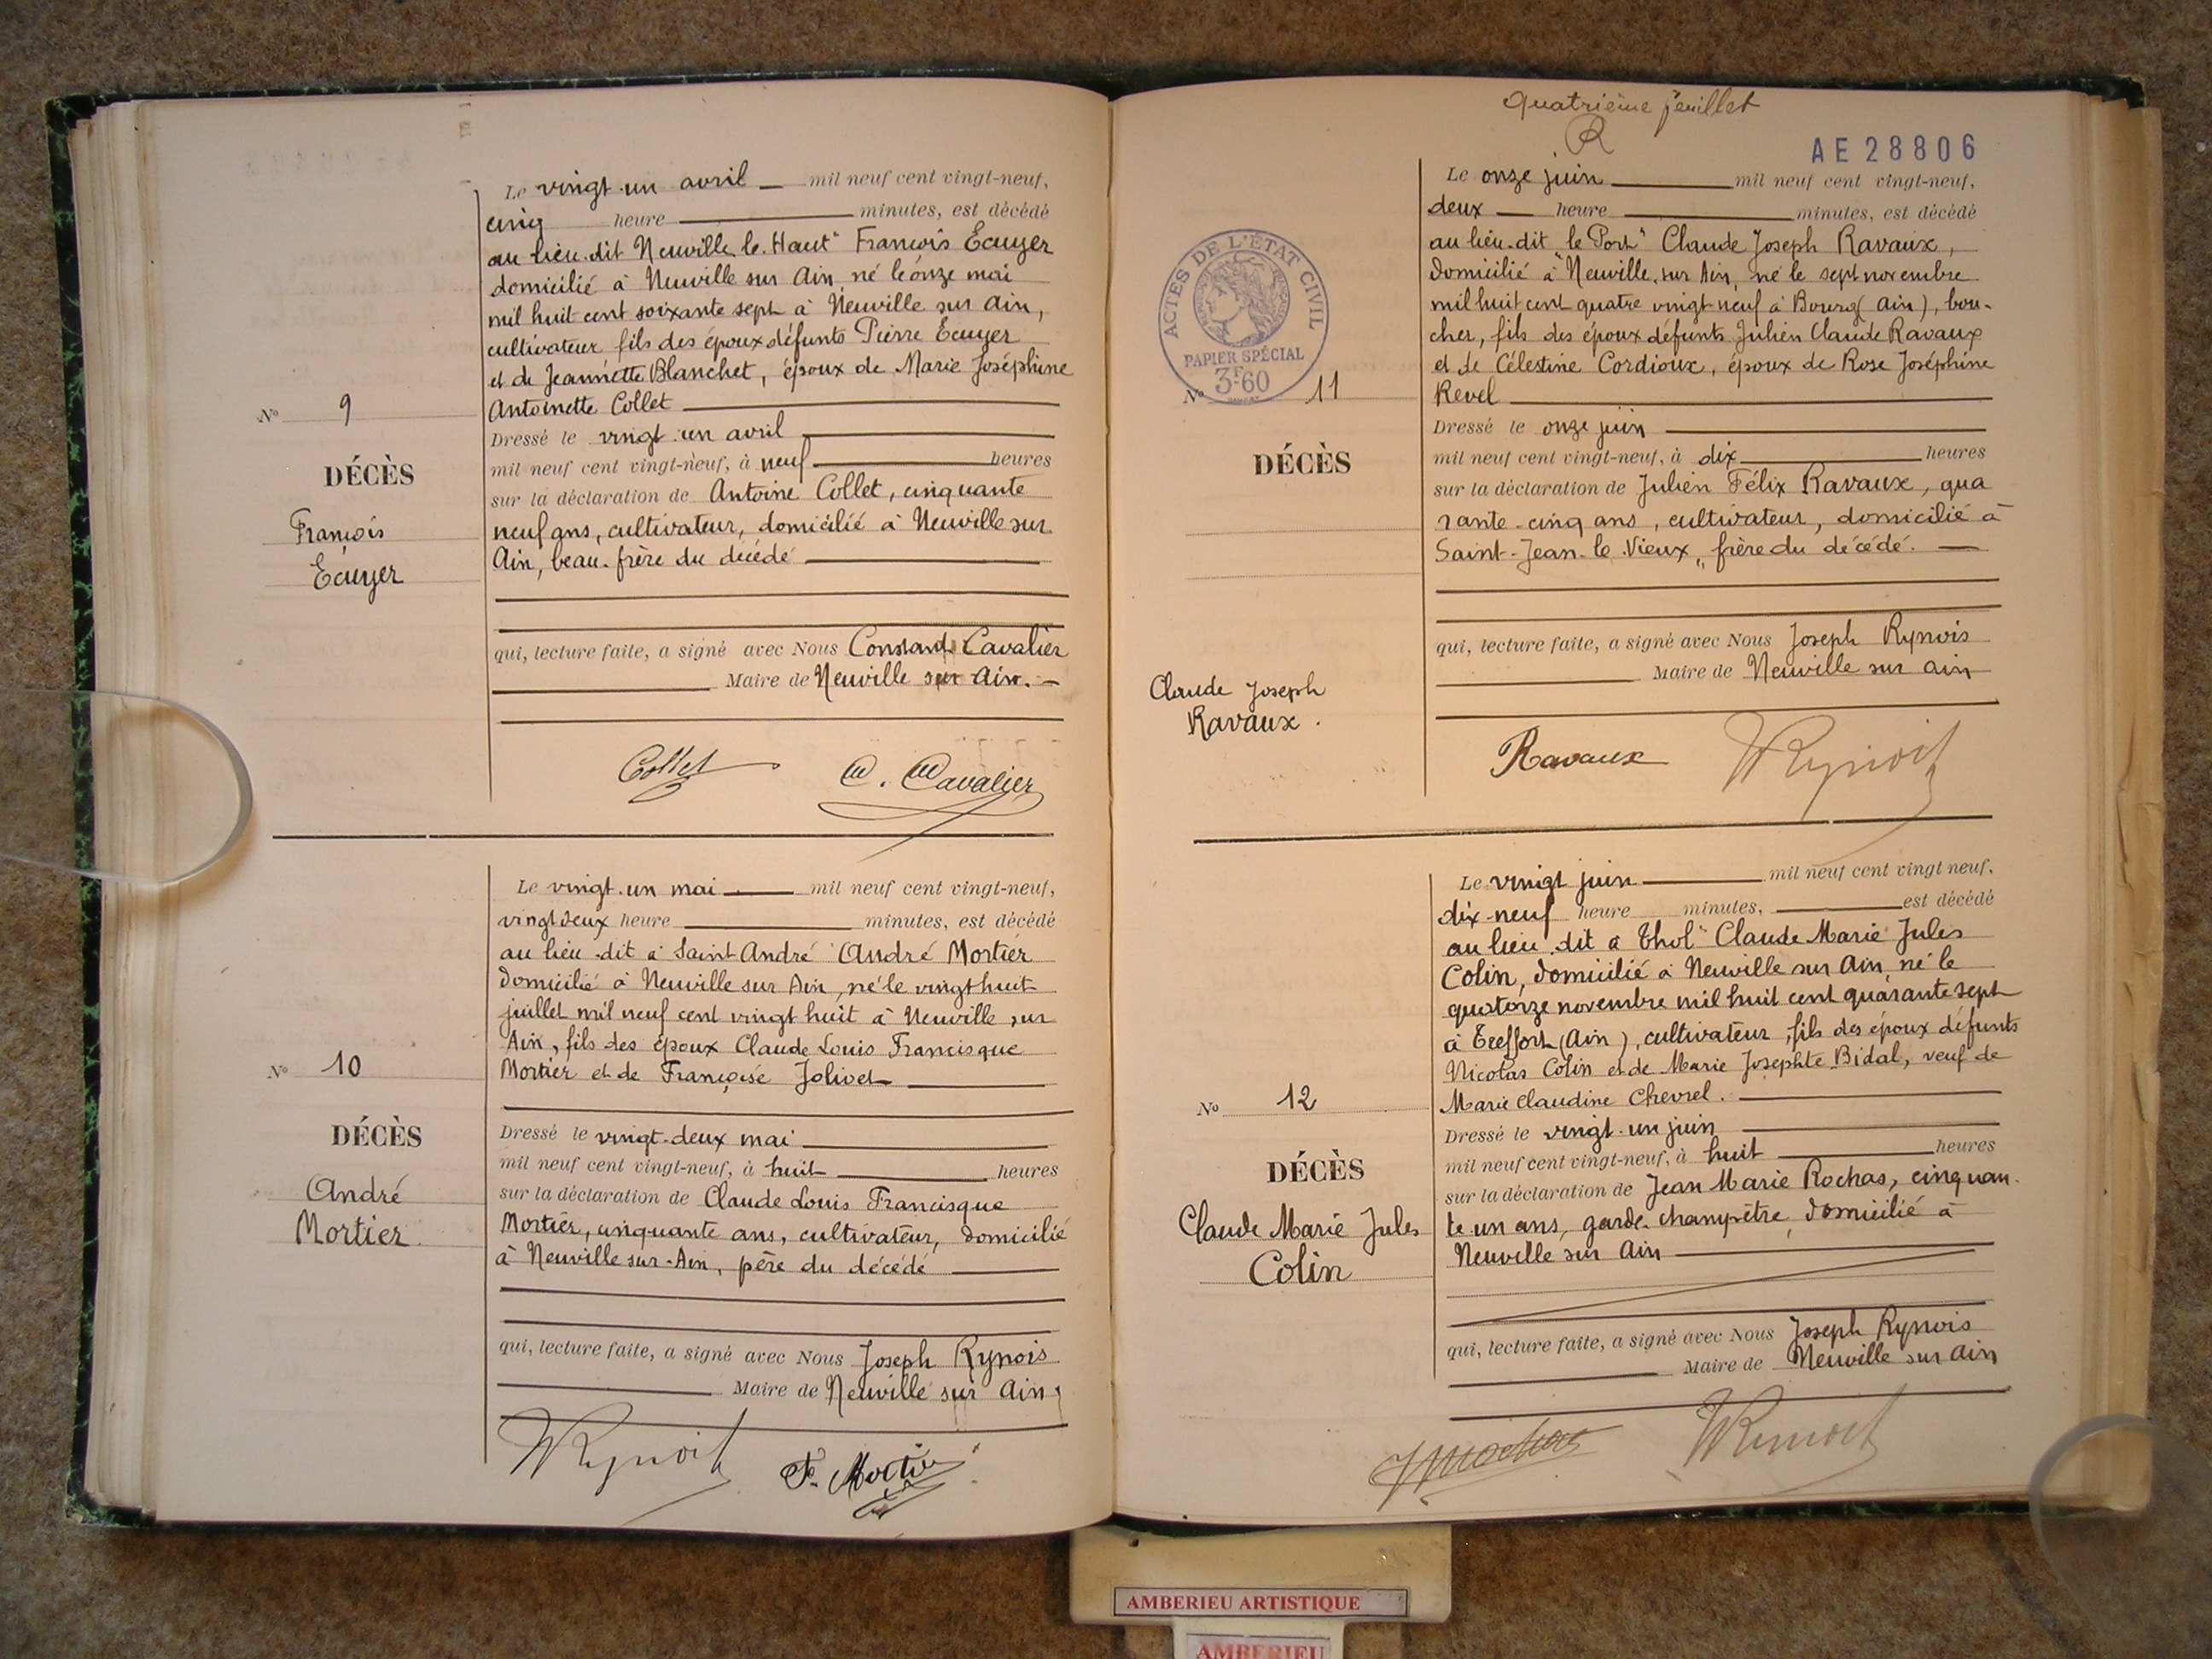 Le vingt-un avril mil neuf cent vingt-neuf,
cinq heure minutes, est décédé
au lieu-dit Neuville-le-Haut" François Ecuyer
domicilié à Neuville sur Ain, né le onze mai
mil huit cent soixante sept à Neuville sur Ain,
cultivateur fils des époux défunts Pierre Ecuyer
et de Jeannette Blanchet, époux de Marie Joséphine
Antoinette Collet
Dressé le vingt-un avril
mil neuf cent vingt-neuf, à neuf heures
sur la déclaration de Antoine Collet, cinquante
neuf ans, cultivateur, domicilié à Neuville sur
Ain, beau-frère du décédé
qui, lecture faite, a signé avec Nous Constand Cavalier
Maire de Neuville sur Ain.
N° 9
DÉCÈS
François
Ecuyer
Collet
C. Cavalier
Le vingt-un mai mil neuf cent vingt-neuf,
vingt deux heure minutes, est décédé
au lieu-dit à Saint André" André Mortier
domicilié à Neuville sur Ain, né le vingt huit
juillet mil neuf cent vingt huit à Neuville sur
Ain, fils des époux Claude Louis Francisque
Mortier et de Françoise Jolivet
Dressé le vingt-deux mai
mil neuf cent vingt-neuf, à huit heures
sur la déclaration de Claude Louis Francisque
Mortier, cinquante ans, cultivateur, domicilié
à Neuville sur-Ain, père du décédé
qui, lecture faite, a signé avec Nous Joseph Rynois
Maire de Neuville sur Ain
N° 10
DÉCÈS
André
Mortier
F. Mortier
quatrième feuillet
R
AE 28806
Le onze juin mil neuf cent vingt-neuf,
deux heure minutes, est décédé
au lieu-dit le Port" Claude Joseph Ravaux,
domicilié à Neuville sur Ain, né le sept novembre
mil huit cent quatre vingt neuf à Bourg (Ain), bou-
cher, fils des époux défunts Julien Claude Ravaux
et de Célestine Cordioux, époux de Rose Joséphine
Revel
Dressé le onze juin
mil neuf cent vingt-neuf, à dix heures
sur la déclaration de Julien Félix Ravaux, qua
rante-cinq ans, cultivateur, domicilié à
Saint-Jean-le-Vieux, frère du décédé.
qui, lecture faite, a signé avec Nous Joseph Rynois
Maire de Neuville sur Ain
ACTES DE L'ÉTAT CIVIL
PAPIER SPÉCIAL
3F60
N° 11
DÉCÈS
Claude Joseph
Ravaux.
Ravaux
Le vingt juin mil neuf cent vingt neuf,
dix-neuf heure minutes, est décédé
au lieu-dit à Thol" Claude Marie Jules
Colin, domicilié à Neuville sur Ain, né le
quatorze novembre mil huit cent quarante sept
à Treffort (Ain), cultivateur, fils des époux défunts
Nicolas Colin et de Marie Josephte Bidal, veuf de
Marie Claudine Chevrel.
Dressé le vingt-un juin
mil neuf cent vingt-neuf, à huit heures
sur la déclaration de Jean Marie Rochas, cinquan-
te-un ans, garde-champêtre, domicilié à
Neuville sur Ain
qui, lecture faite, a signé avec Nous Joseph Rynois
Maire de Neuville sur Ain
N° 12
DÉCÈS
Claude Marie Jules
Colin
AMBERIEU ARTISTIQUE
AMBERIEU